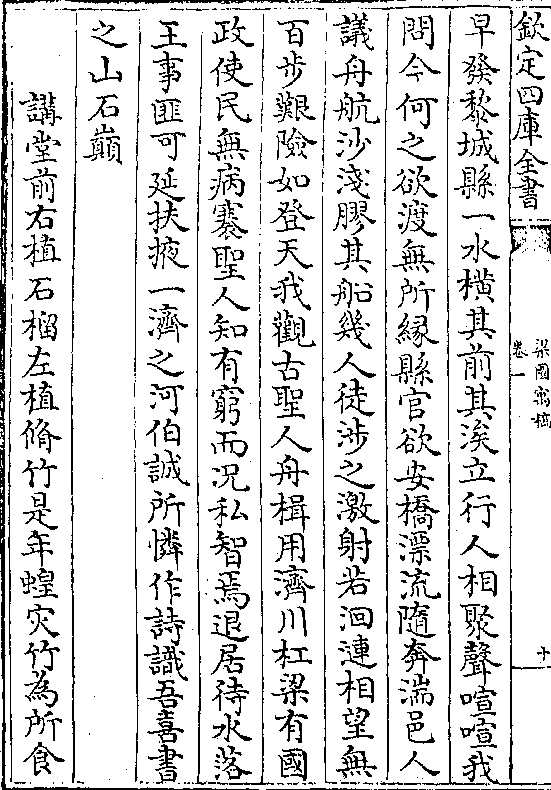 欽定四庫全書
梁園寓稿
卷一
十
早發黎城縣一水横其前其涘立行人相聚聲喧喧我
問今何之欲渡無所縁縣官欲安橋漂流隨奔湍邑人
議舟航沙淺膠其船幾人徒涉之激射若洄連相望無
百步艱險如登天我觀古聖人舟楫用濟川杠梁有國
政使民無病褰聖人知有窮而况私智焉退居待水落
王事匪可延扶掖一濟之河伯誠所憐作詩識吾喜書
之山石巔
講堂前右植石榴左植脩竹是年蝗灾竹為所食